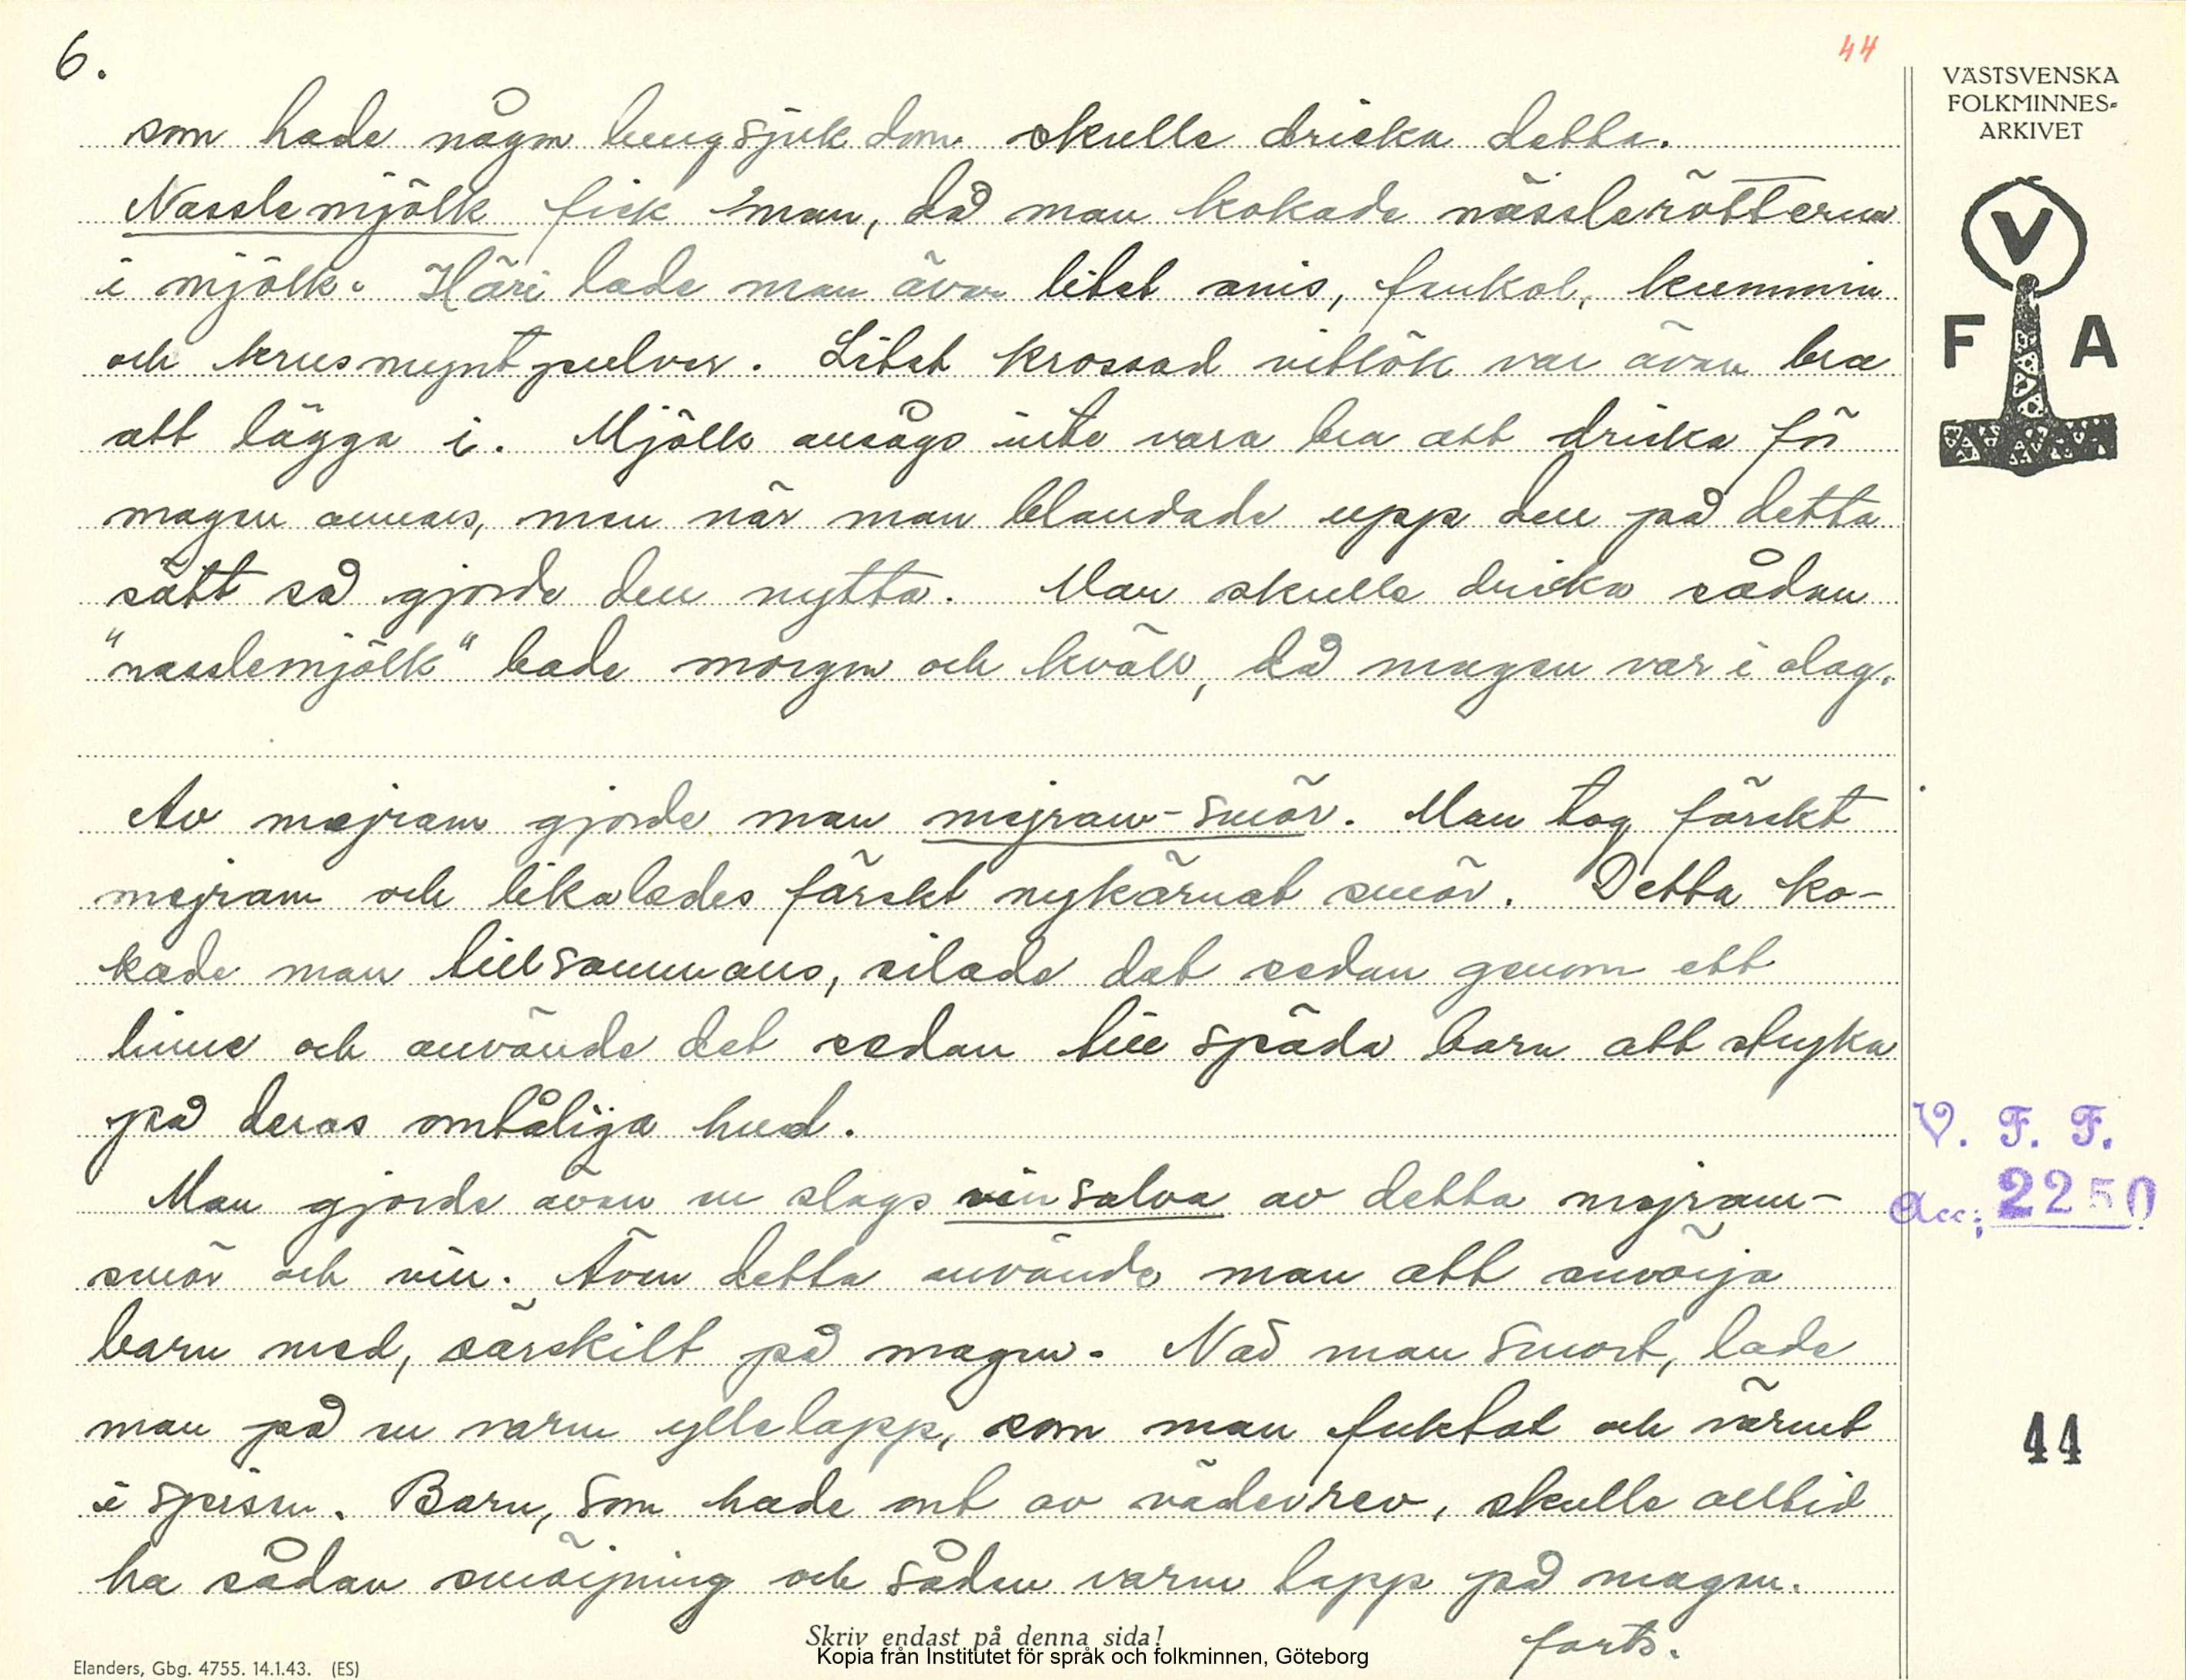 6.
44
VÄSTSVENSKA
FOLKMINNES-
ARKIVET
V
F A
som hade någon lungsjukdom skulle dricka detta.
Nasslemjölk fick man, då man kokade nässlerötterna
i mjölk. Häri lade man även litet anis, fenkol, kummin
och krusmyntpulver. Litet krossad vitlök var även bra
att lägga i. Mjölk ansågs inte vara bra att dricka för
magen annars, men när man blandade upp den på detta
sätt så gjorde den nytta. Man skulle dricka sådan
"nasslemjölk" både morgon och kväll, då magen var i olag.
Av mejram gjorde man mejram-smör. Man tog färskt
mejram och likaledes färskt nykärnat smör. Detta ko-
kade man tillsammans, silade det sedan genom ett
linne och använde det sedan till späda barn att stryka
på deras ömtåliga hud.
Man gjorde även en slags vinsalva av detta mejram-
smör och vin. Även detta använde man att smörja
barn med, särskilt på magen. När man smort, lade
man på en varm yllelapp, som man fuktat och värmt
i spisen. Barn, som hade ont av väderrev, skulle alltid
ha sådan smörjning och sådan varm lapp på magen.
forts.
V. F. F.
Acc: 2250
44
Skriv endast på denna sida!
Kopia från Institutet för språk och folkminnen, Göteborg
Elanders, Gbg. 4755. 14.1.43. (ES)